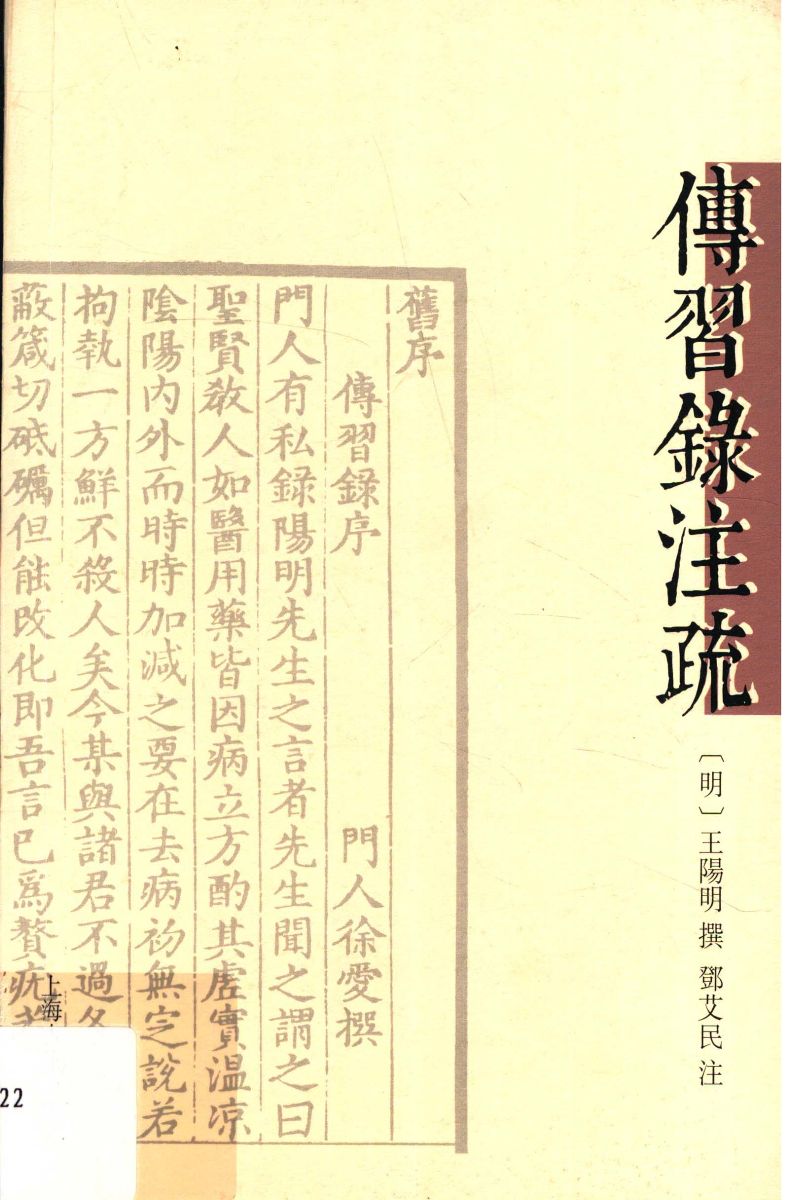 傳習錄注疏
〔明〕王陽明 撰 鄧艾民 注
舊序
傳習錄序
門人徐愛撰
門人有私錄陽明先生之言者先生聞之謂之曰
聖賢教人如醫用藥皆因病立方酌其虛實温凉
陰陽内外而時時加減之要在去病初無定說若
拘執一方鮮不殺人矣今某與諸君不過各
蔽箴切砥礪但能改化即吾言已爲贅疣
上海
22